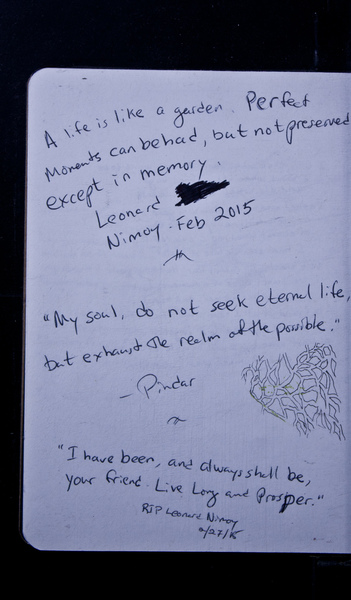 A life is like a garden. Perfect
Moments can be had, but not preserved
except in memory.
Leonard
Nimoy - Feb 2015
"My soul, do not seek eternal life,
but exhaust the realm of the possible."
- Pindar
"I have been, and always shall be,
your friend. Live Long and Prosper."
RIP Leonard Nimoy
2/27/15